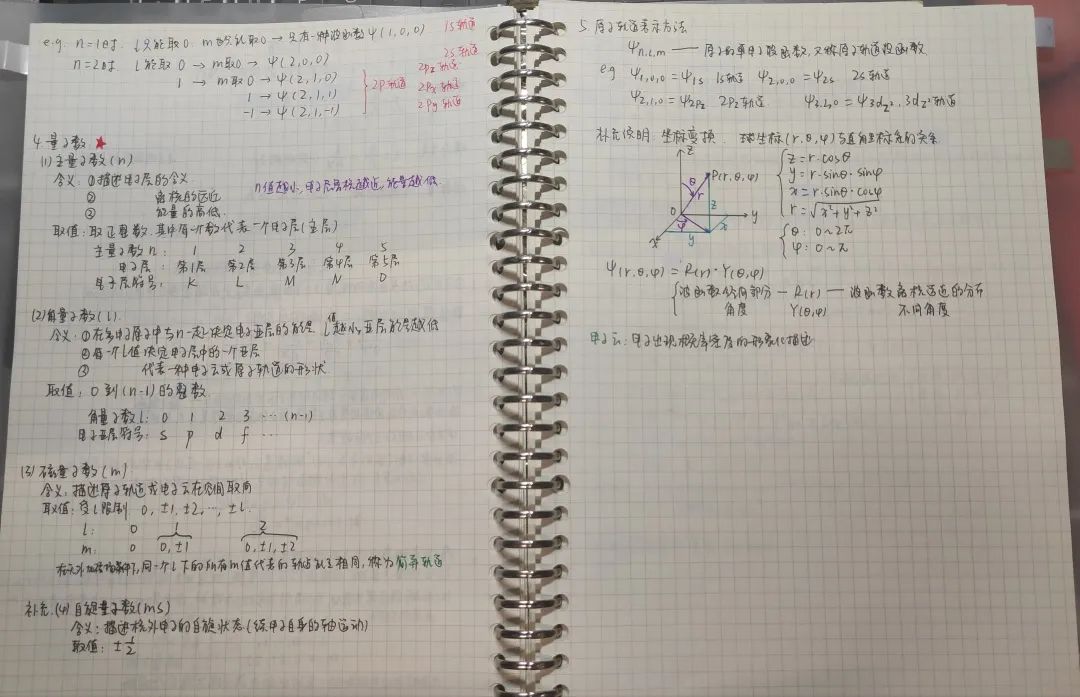 e.g. n=1时. l只能取0. m也只能取0 → 只有一种波函数 ψ(1,0,0) 1S轨道
n=2时. l能取 0 → m取0 → ψ(2,0,0) 2S轨道
1 → m取0 → ψ(2,1,0) 2Pz轨道
1 → ψ(2,1,1) 2P轨道 2Px轨道
-1 → ψ(2,1,-1) 2Py轨道
4.量子数 ★
(1) 主量子数(n)
含义: ①描述电子层的含义
② 离核的远近
③ 能量的高低.
n值越小,电子层离核越近,能量越低.
取值: 取正整数. 其中每一个数代表一个电子层(主层)
主量子数 n: 1 2 3 4 5
电子层: 第1层 第2层 第3层 第4层 第5层
电子层符号: K L M N O
(2)角量子数(l).
含义: ①在多电子原子中与n一起决定电子亚层的能量. l值越小,亚层能量越低
②每一个l值决定电子层中的一个亚层
③ 代表一种电子云或原子轨道的形状
取值: 0到(n-1)的整数.
角量子数l: 0 1 2 3 … (n-1)
电子亚层符号: s p d f …
(3) 磁量子数(m)
含义: 描述原子轨道或电子云在空间取向
取值: 受l限制 0, ±1, ±2, …, ±l.
l: 0 1 2
m: 0 0,±1 0,±1,±2
同一个l下的所有m值代表的轨道能量相同,称为简并轨道
补充.(4)自旋量子数(ms)
含义: 描述核外电子的自旋状态(绕电子自身的轴运动)
取值: ±1/2
5. 原子轨道表示方法
ψn,l,m —— 原子的单电子波函数,又称原子轨道波函数
e.g ψ1,0,0 = ψ1s 1s轨道 ψ2,0,0 = ψ2s 2s轨道
ψ2,1,0 = ψ2pz 2Pz轨道 ψ3,2,0 = ψ3dz², 3dz²轨道
补充说明: 坐标变换. 球坐标(r,θ,φ)与直角坐标系的关系
z
P(r,θ,φ)
θ
r
z
O
y
φ
x
x
y
z=r·cosθ
y=r·sinθ·sinφ
x=r·sinθ·cosφ
r=√x²+y²+z²
θ: 0~2π
φ: 0~π
ψ(r,θ,φ) = R(r)·Y(θ,φ)
波函数径向部分 — R(r) — 波函数离核远近的分布
角度 Y(θ,φ) 不同角度
电子云: 电子出现概率密度的形象化描述